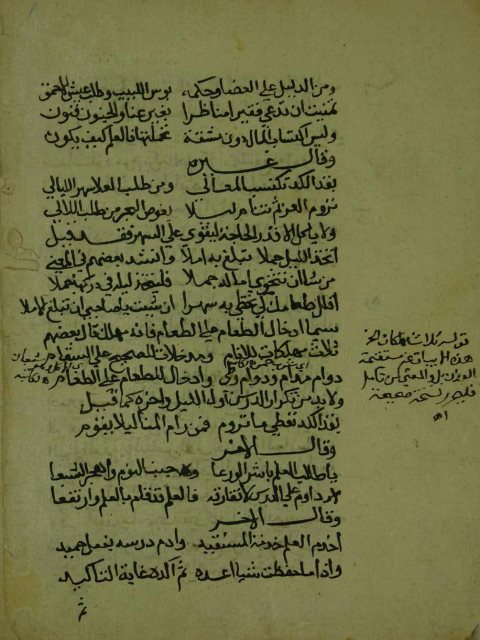 ومن الدليل على القضا وحكمه بوس اللبيب وطيب عيش الاحمق
تمنيت ان تدعى فقيها مناظرا بغير عناء والجنون فنون
وليس اكتساب المال دون مشقة تحملها فالعلم كيف يكون
وقال غيره
بقدر الكد تكتسب المعالي ومن طلب العلا سهر الليالي
تروم العز ثم تنام ليلا يغوص البحر من طلب اللالي
ولا ياكل الا قدر الحاجة ليقوى على السهر فقد قيل
اتخذ الليل جملا تبلغ به املا وانشد بعضهم في المعنى
من شا ان يحتوي اماله جملا فليتخذ ليله في دركها جملا
اقلل طعامك كي تحظى به سهرا ان شئت يا صاحبي ان تبلغ الاملا
سيما ادخال الطعام على الطعام فانه مهلك قال بعضهم
ثلاث مهلكات للانام وداعية الصحيح الى السقام
دوام مدامة ودوام وطئ وادخال الطعام على الطعام
ولا بد من تكرار الدرس اول الليل واخره كما قيل
بقدر الكد تعطى ما تروم فمن رام المنا ليلا يقوم
وقال الاخر
يا طالب العلم باشر الورعا وجنب النوم واهجر الشبعا
داوم على الدرس لا تفارقه فالعلم قد قام بالعلم وارتفعا
وقال الاخر
اخدم العلم خدمة المستفيد وادم درسه بفعل حميد
واذا ما حفظت شيئا اعده ثم اكده غاية التاكيد
ثم
قوله ثلاث مهلكات الخ
هذه الابيات مستقيمة
الوزن